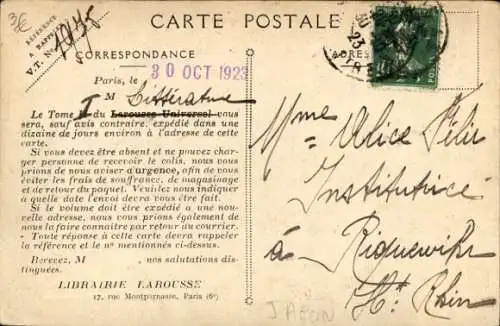 CARTE POSTALE
RÉFÉRENCE
A RAPPELER
V.T. No 1935
CORRESPONDANCE
ADRESSE
Paris, le 30 OCT 1923
M Littérature
Le Tome I du Larousse Universel vous
sera, sauf avis contraire, expédié dans une
dizaine de jours environ à l'adresse de cette
carte.
Si vous devez être absent et ne pouvez char-
ger personne de recevoir le colis, nous vous
prions de nous aviser d'urgence, afin de vous
éviter les frais de souffrance, de magasinage
et de retour du paquet. Veuillez nous indiquer
à quelle date l'envoi devra vous être fait.
Si le volume doit être expédié à une nou-
velle adresse, nous vous prions également de
nous la faire connaître par retour du courrier.
· Toute réponse à cette carte devra rappeler
la référence et le no mentionnés ci-dessus.
Recevez, M , nos salutations dis-
tinguées.
LIBRAIRIE LAROUSSE
17, rue Montparnasse, Paris (6e)
Mme Alice
Institutrice
à Riquewihr
Ht Rhin